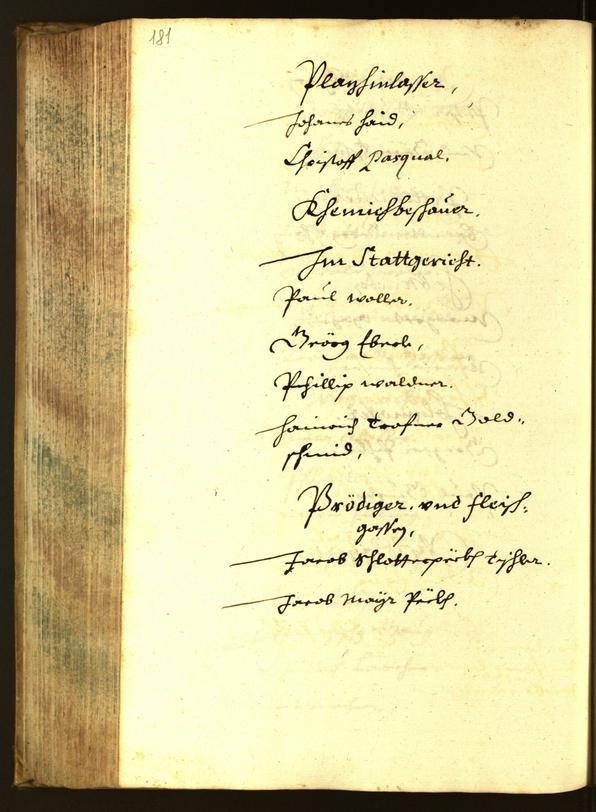 181
Plazhinlasser,
Johanes Haid,
Christoff Pasqual.
Khemichbeschauer.
Im Stattgericht.
Paul Woller.
Geörg Eberle,
Phillip Waldner.
Hainrich Trofner Gold-
schmid,
Prödiger. vnd Fleisch-
gassen,
Jacob Schlotterpëckh Tischler.
Jacob Mayr Pëckh.